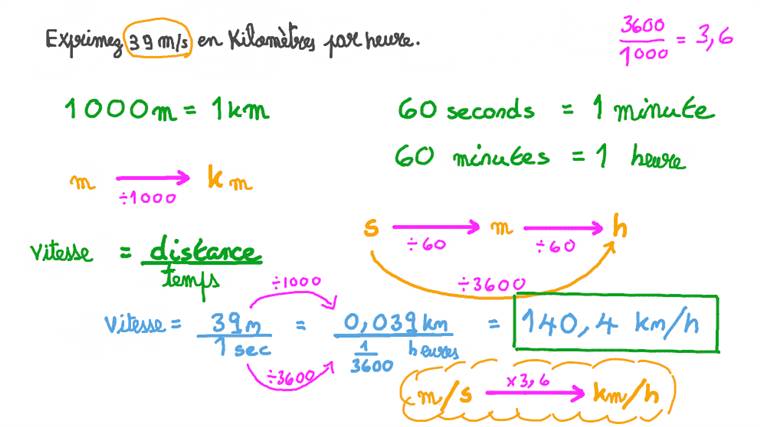 Exprimez 39 m/s en Kilomètres par heure.
3600/1000 = 3,6
1000m = 1km
60 seconds = 1 minute
60 minutes = 1 heure
m ÷1000 km
s ÷60 m ÷60 h
÷3600
vitesse = distance/temps
÷1000
Vitesse = 39m/1 sec = 0,039km/(1/3600 heures) = 140,4 km/h
÷3600
m/s ×3,6 km/h